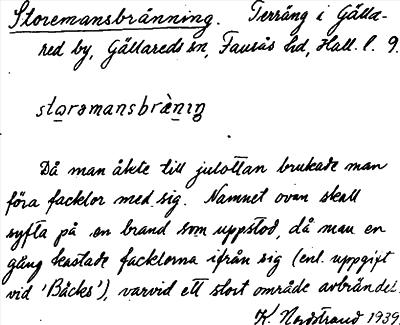 Storemansbränning. Terräng i Gälla-
red by, Gällareds sn, Faurås hd, Hall. l. 9.
storəmansbrèniŋ
Då man åkte till julottan brukade man
föra facklor med sig. Namnet ovan skall
syfta på en brand som uppstod, då man en
gång kastade facklorna ifrån sig (enl. uppgift
vid 'Bäcks'), varvid ett stort område avbrändes.
K. Nordstrand 1939.